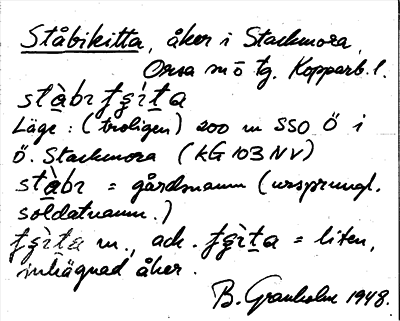 Ståbikitta, åker i Stackmora,
Orsa sn ö tg. Kopparb. l.
stàbı ʄɕìt̠a
Läge: (troligen) 200 m SSO Ö i
Ö. Stackmora (KG 103 NV)
stàbı = gårdsnamn (ursprungl.
soldatnamn.)
ʄɕìt̠a m., ack. ʄɕìt̠a = liten,
inhägnad åker.
B. Granholm 1948.